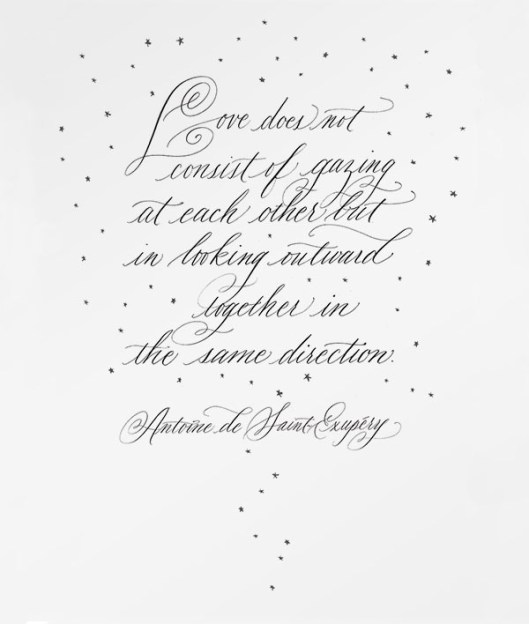 Love does not
consist of gazing
at each other but
in looking outward
together in
the same direction.
Antoine de Saint Exupéry